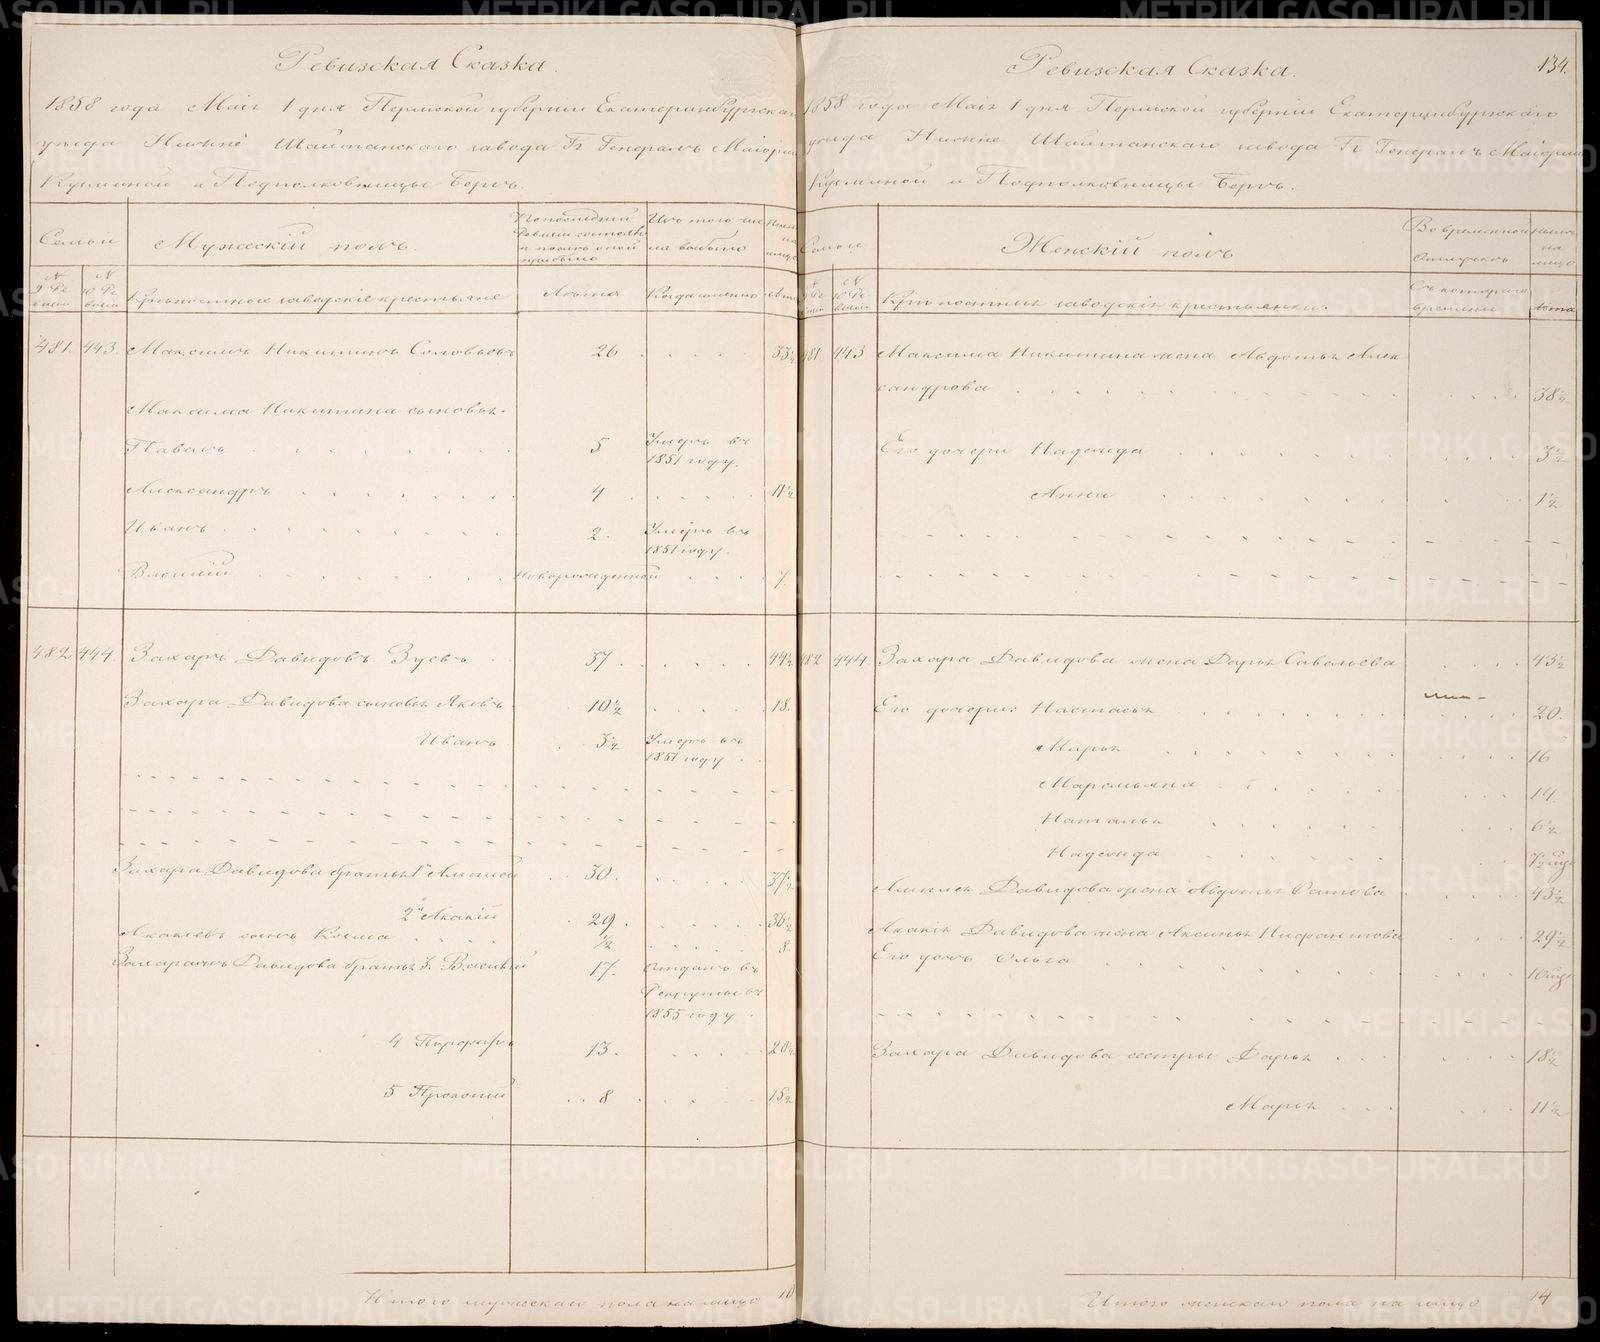 Ревизская Сказка.
1858 года Маія 1 дня Пермской губерніи Екатеринбургскаго
уезда Нижне Шайтанскаго завода Гг Генералъ Маіорши
Кузминой и Подполковницы Бергъ.
Семьи
Мужескій полъ.
По последней Ревизіи состояло и после оной прибыло
Изъ того числа выбыло
Ныне на лицо
№ 9 Ревизіи
№ 10 Ревизіи
Крѣпостные заводскіе крестьяне
Лѣта
Когда именно
Лѣта
481. 443. Максимъ Никитинъ Соловьевъ 26 33½
Максима Никитина сыновья.
Павелъ 5 Умеръ въ
1851 году.
Александръ 4 11½
Иванъ 2. Умеръ въ
1851 году.
Василій Новорожденной 7.
482 444. Захаръ Давидовъ Зуевъ 37 44½
Захара Давидова сыновья Яковъ 10½ 18.
Иванъ 3½ Умеръ въ
1851 году
Захара Давидова братья 1й 30. 37½
2й Акакій 29 36½
Акакіевъ сынъ Козма ½ 8.
Захара Давидова братья 3. Василій 17. Отданъ въ
Рекруты въ
1855 году
4 Порфиръ 13. 20½
5 Прокопій 8 15½
Итого мужескаго пола на лицо 10
134.
Ревизская Сказка.
1858 года Маія 1 дня Пермской губерніи Екатеринбургскаго
уезда Нижне Шайтанскаго завода Гг Генералъ Маіорши
Кузминой и Подполковницы Бергъ.
Семьи
Женскій полъ
Во временной отлучкѣ
Нынѣ на лицо
№ 9 Ревизіи
№ 10 Ревизіи
Крѣпостныя заводскія крестьянки.
Съ котораго времени
Лета
481 443 Максима Никитина жена Авдотья Алек
сандрова 38½
Его дочери Надежда 3½
Анна 1½
482 444. Захара Давидова жена Дарья Савельева 43½
Его дочери: Настасья 20.
Марья 16
Маремьяна 14
Наталья 6½
Надежда
Давидова жена Авдотья 43½
Акакія Давидова жена Аксинья 29½
Его дочь Ольга
Захара Давидова сестры Дарья 18½
Марья 11½
Итого женскаго пола на лицо 14
METRIKI.GASO-URAL.RU